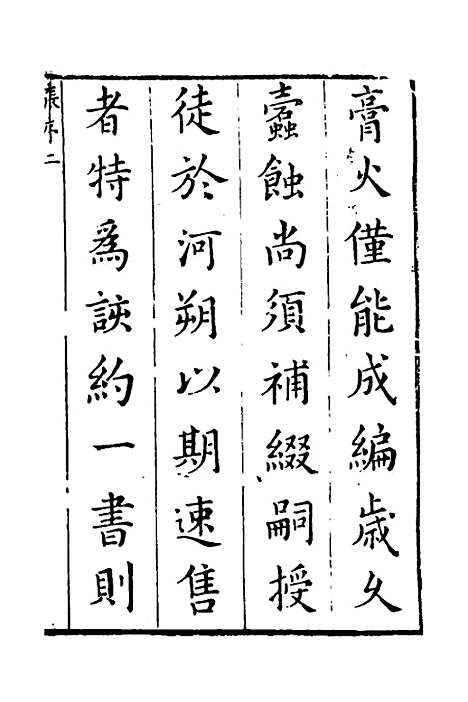 膏火僅能成編歲久
蠧蝕尚須補綴嗣授
徒於河朔以期速售
者特為談約一書則
張序二